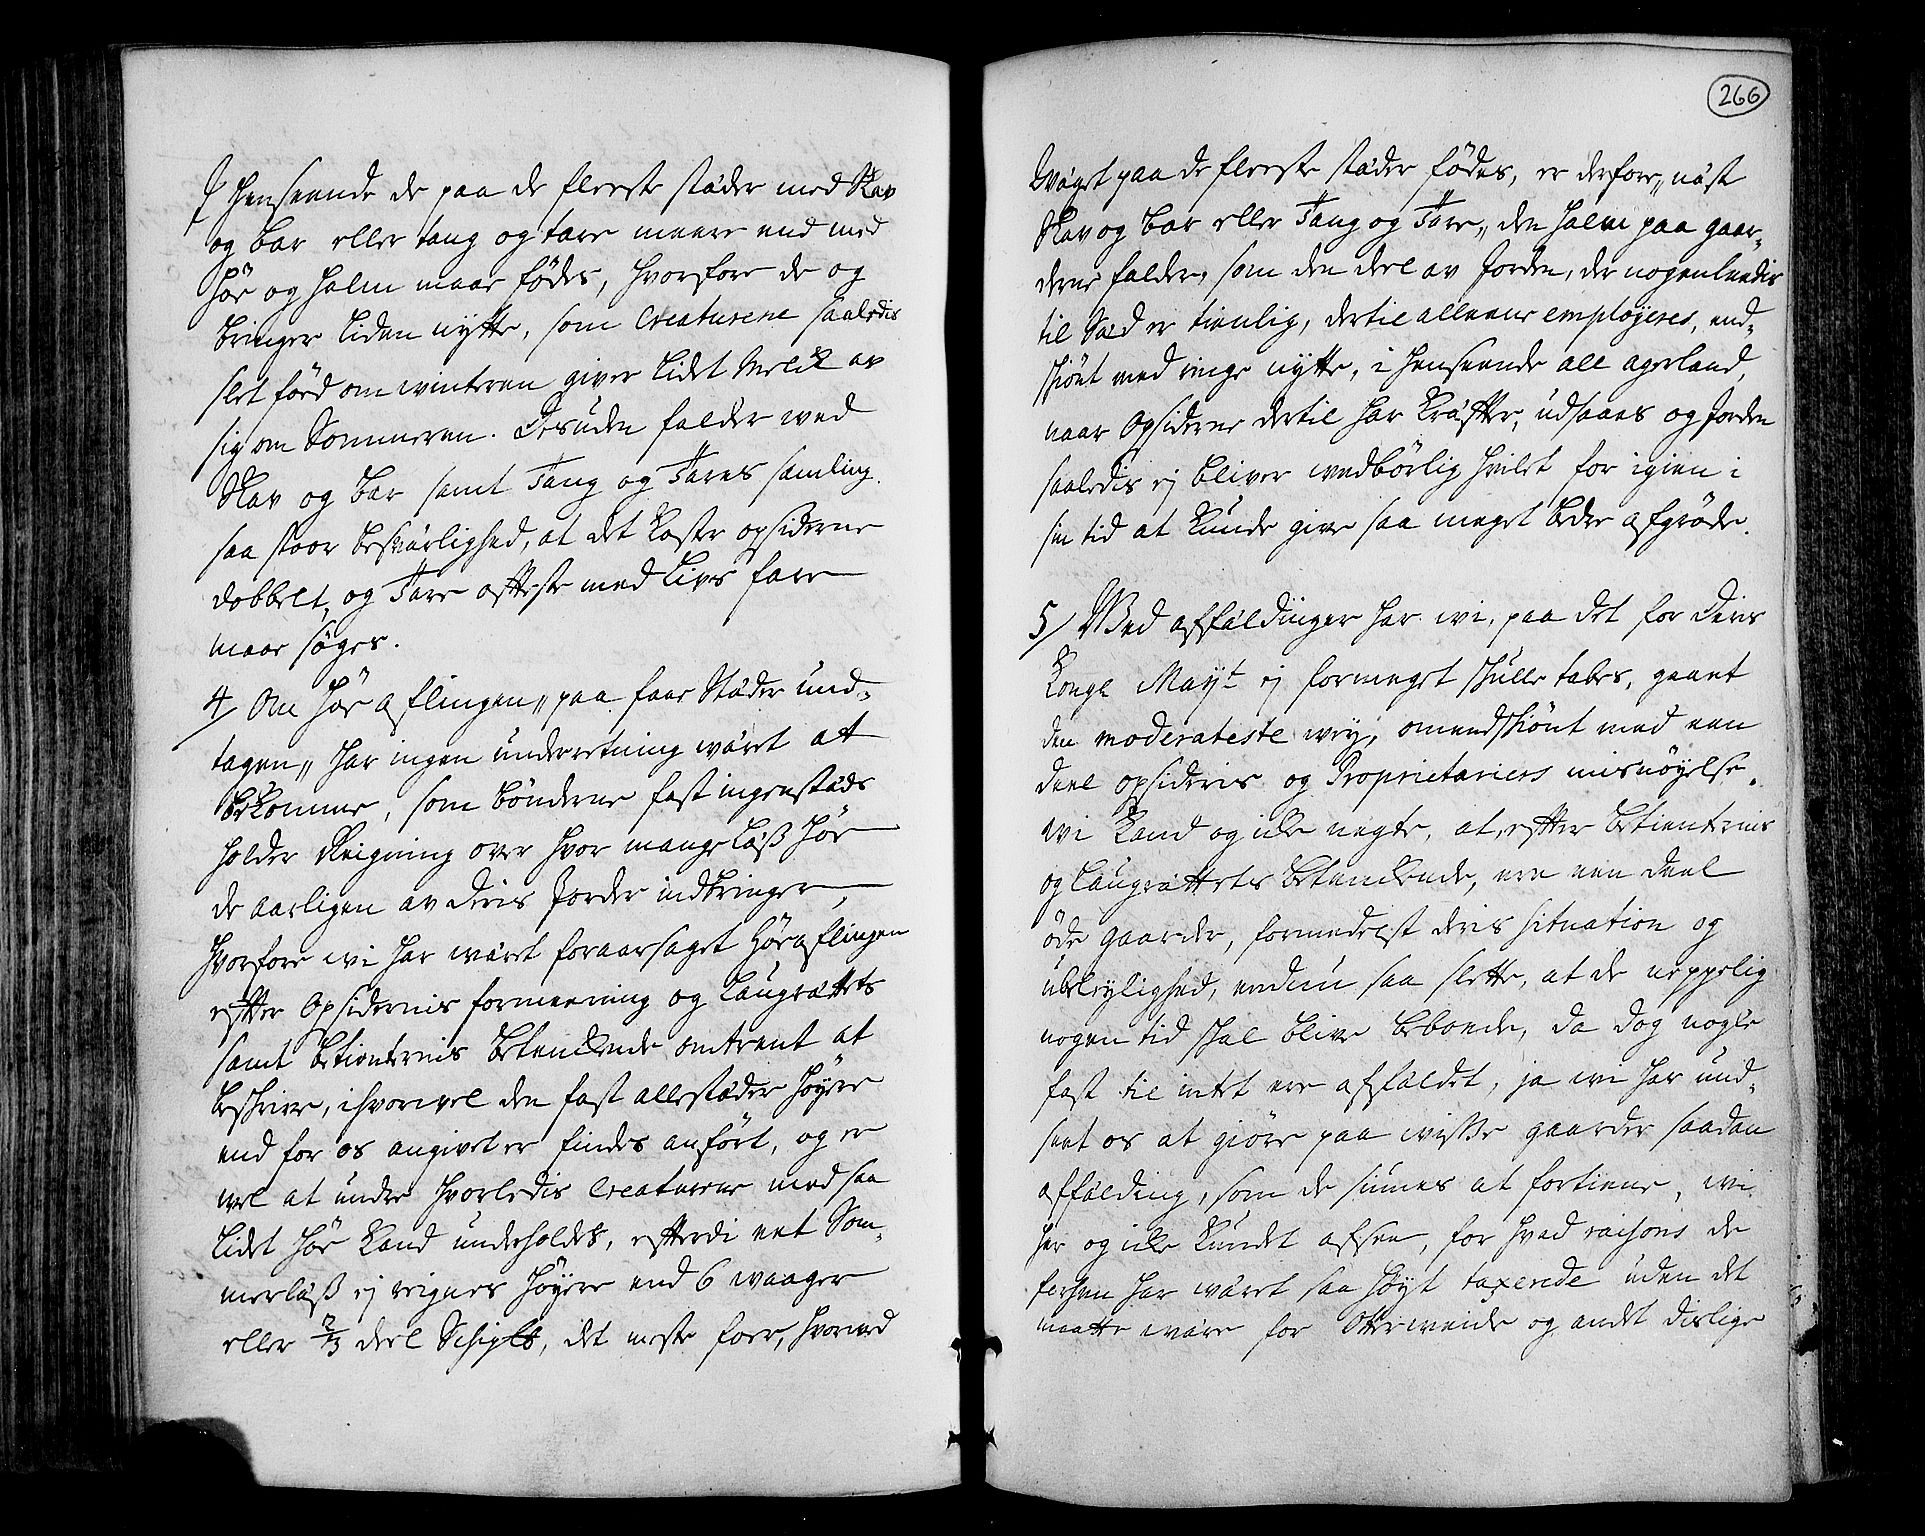 I henseende de paa de fleeste stæder med Skav
og bar eller tang og tare meere end med
Höe og halm maae födes, hvorfore de og
bringer liden nytte, som Creaturene saaledis
slet föed om winteren giver lidet Melck av
sig om Sommeren. Desuden falder ved
Skav og bar samt Tang og Tares samling
saa stoor beswærlighed, at det koster opsiderne
dobbelt, og Tare offteste med Livs fare
maae söges.
4/ Om Höe aflingen,, paa faae Stæder und-
tagen,, har ingen underretning wæret at
bekomme, som bönderne fast ingenstæds
holder Reigning over hvor mange læß höe
de aarligen av deris Jorder indbringer,
hvorfore wi har wæret foraarsaget Höeaflingen
effter opsidernis formeening og Laugrættets
samt betienternis betenckende omtrent at
beskrive, ihvorvel den fast allestæder höyere
end for os angivet er findes anfört, og er
wel at undre hvorledis Creaturene med saa
lidet höe kand underholdes, efterdi eet Som-
merlæß ej reignes höyere end 6 waager
eller 2/3 deel Schiplb, det meste foer, hvorved
266
Qwæget paa de fleeste stæder födes, er derfore,, næst
Skav og bar eller Tang og Tare,, den halm paa gaar-
derne falder, som den deel av Jorden, der nogenlundis
til Sæd er tienlig, dertil alleene employeres, end-
skiönt med ringe nytte, i henseende all agerland,
naar Opsiderne dertil har kræffter, udsaaes og Jorden
saaledis ej bliver wedbörlig hvilet for igien i
sin tid at kunde give saa meget bedre afgröde.
5/ Wed affældinger har wi, paa det for Deris
Kongl May:t ej formeget skulle tabes, gaaet
den moderateste wey, omendskiönt med een
deel opsideris og Proprietariers misnöyelse.
wi kand og icke negte, at, effter betienternis
og Laugrættetes betenckende, ere een deel
öde gaarder, formedelst deris situation og
ubeleylighed, endnu saa slette, at de neppelig
nogen tid skal blive beboede, da dog nogle
fast til intet ere affældet, ja wi har und-
seet os at giöre paa wisse gaarder saadan
affælding, som de siunes at fortiene, wi
har og icke kundet afsee, for hvad raisons de
forhen har wæret saa höyt taxerede uden det
maatte wære for Otterweide og andet dislige